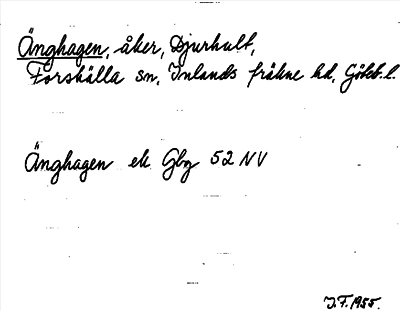 Änghagen, åker, Djurhult,
Forshälla sn, Inlands fräkne hd, Göteb. l.
Änghagen ek Gbg 52 NV
J.F. 1955.